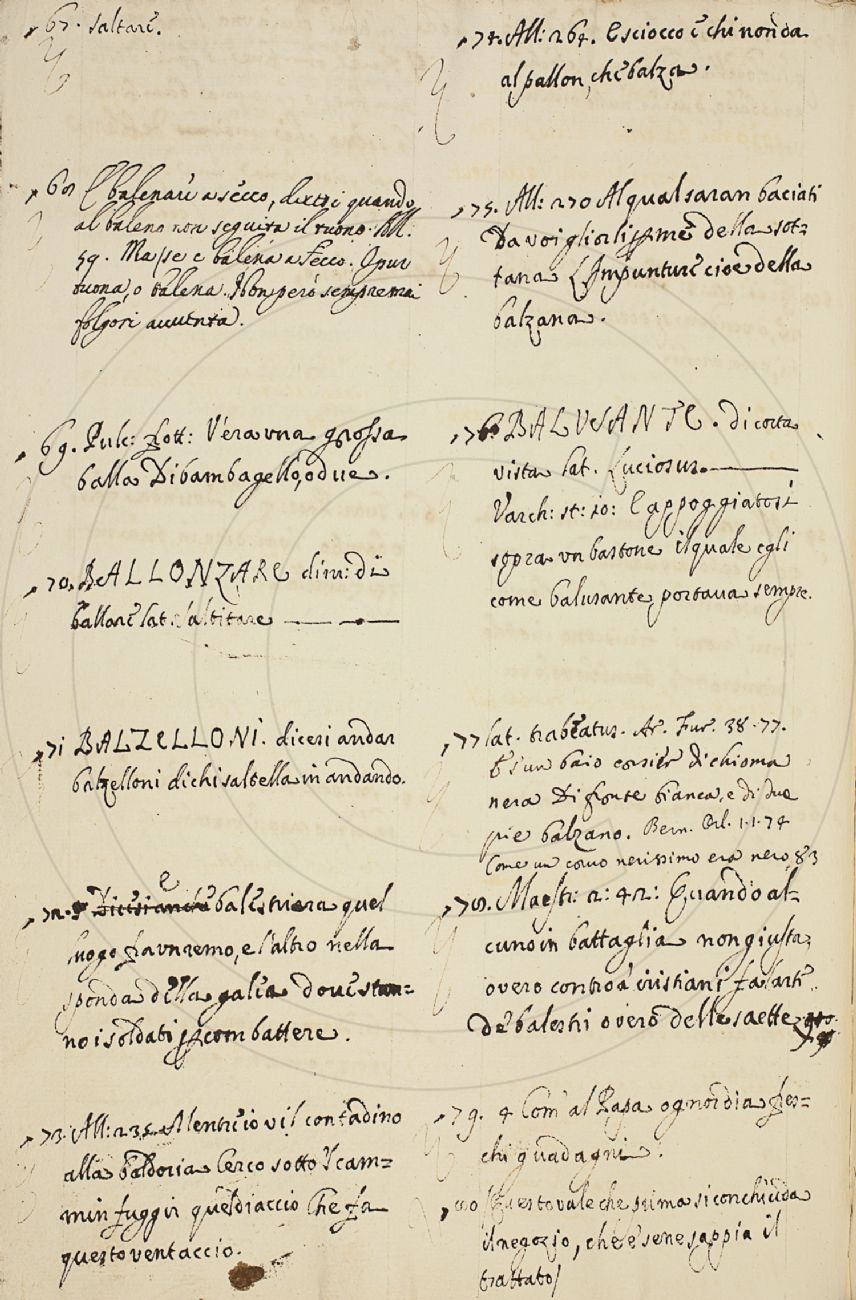 67. saltare.
68 E balenare a secco, dicesi quando
al baleno non seguita il tuono. All.
59. Ma se e balena a secco. O pur
tuona, o balena. Non però sempre mai
folgori auuenta.
69. Pulc: Frott: V'era una grossa
balla Di bambagello, o due.
70. BALLONZARE dim: di
ballare lat. saltitare
71 BALZELLONI. dicesi andar
balzelloni di chi saltella in andando.
72. è balestriera quel
luogo fra un remo, e l'altro nella
sponda della galea doue stan=
no i soldati p combattere.
73. All: 235. Mentre io vil contadino
alla baldoria Cerco sotto 'l cam=
min fuggir quel diaccio Che fa
questo ventaccio.
74. All: 264. E sciocco è chi non da
al pallon, che balza.
75. All: 270 Al qual saran baciati
Da voi gli orliss.me della sot=
tana L'Impunture cioè della
balzana.
76 BALUSANTE. di corta
vista lat. Luciosus.
Varch: st: 10: E appoggiatosi
sopra un bastone il quale egli
come balusante portaua sempre.
77 lat. trabeatus. Ar. Fur. 38.77.
E s'un baio corsier di chioma
nera Di fronte bianca, e di due
pie balzano. Bern. Orl. 1.1.74
Come un corvo nerissimo era nero 83
78. Maestr: 2: 42: Quando al=
cuno in battaglia non giusta,
overo contro a' cristiani fa l'arte
de' balestri overo delle saette
79. 4 Com' al Papa ognor dia fres=
chi guadagni.
80 Questo vale che prima si conchiuda
il negozio, che e' se ne sappia il
trattato